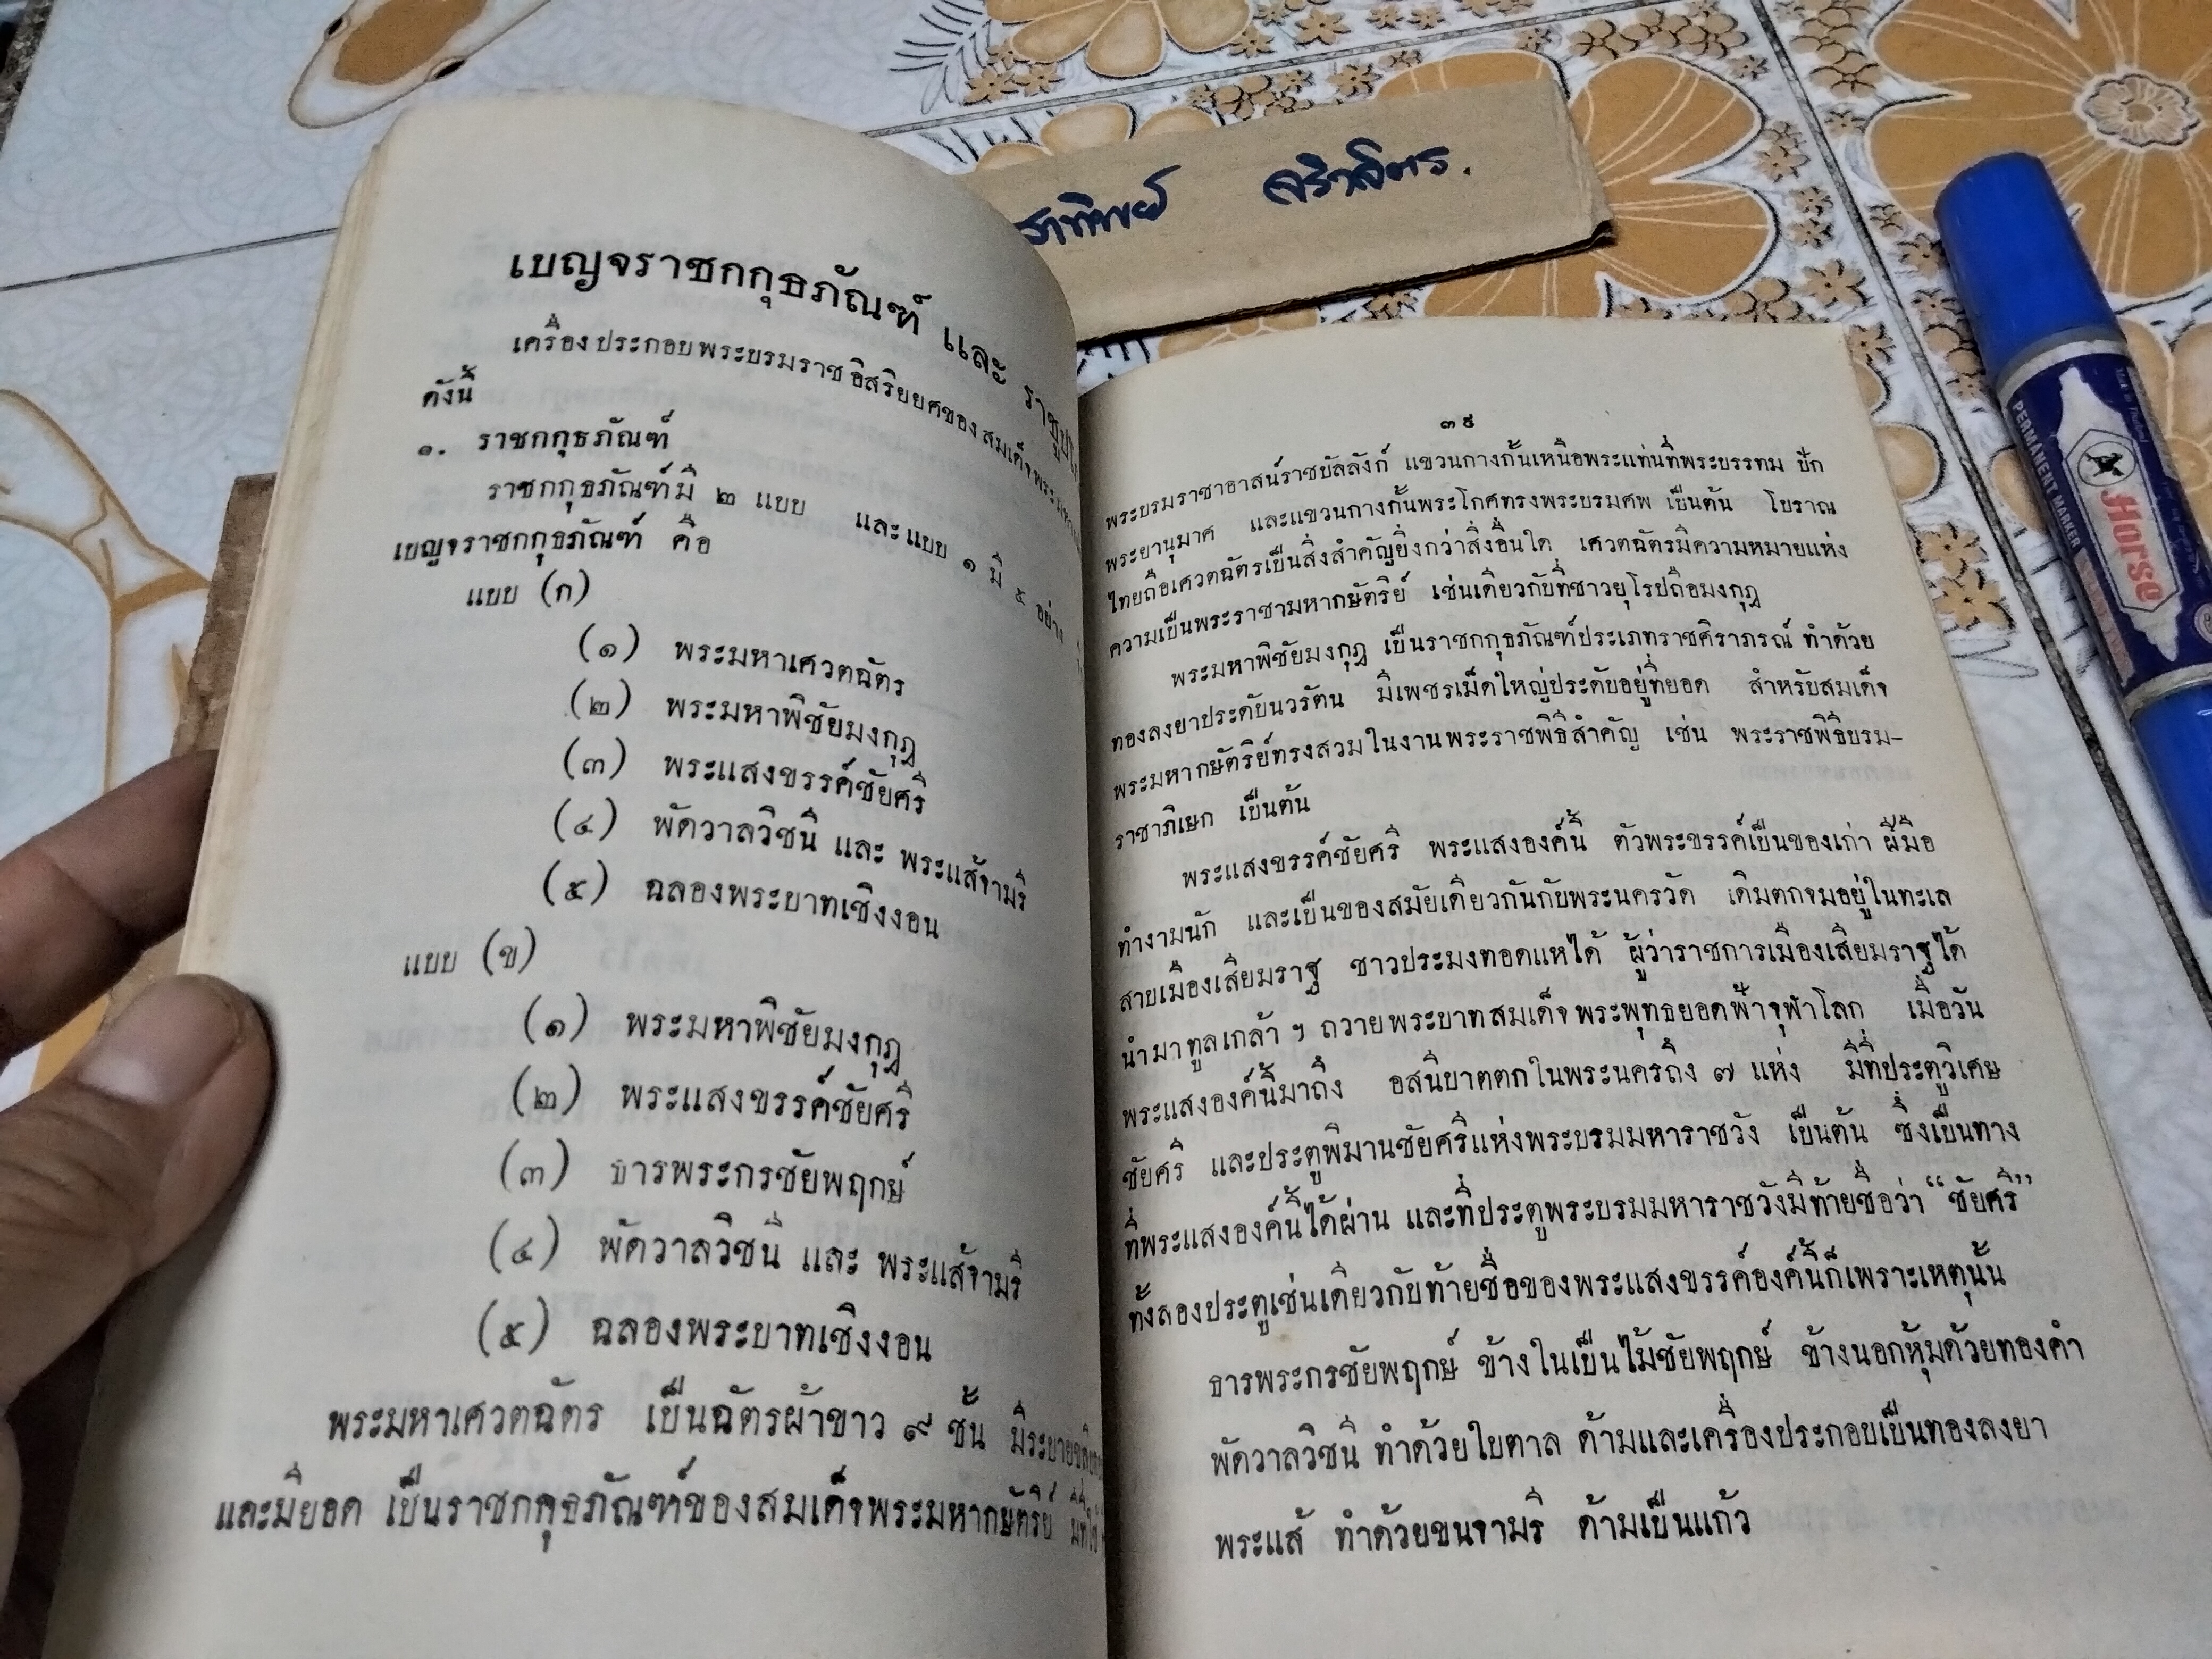 เบญจราชกกุธภัณฑ์ และ
เครื่องประกอบพระบรมราชอิสริยยศของสมเด็จพระมหา
ดังนี้
๑. ราชกกุธภัณฑ์
ราชกกุธภัณฑ์มี ๒ แบบ และแบบ ๑ มี ๕ อย่าง
เบญจราชกกุธภัณฑ์ คือ
แบบ (ก)
(๑) พระมหาเศวตฉัตร
(๒) พระมหาพิชัยมงกุฎ
(๓) พระแสงขรรค์ชัยศรี
(๔) พัดวาลวิชนี และ พระแส้จามรี
(๕) ฉลองพระบาทเชิงงอน
แบบ (ข)
(๑) พระมหาพิชัยมงกุฎ
(๒) พระแสงขรรค์ชัยศรี
(๓) ธารพระกรชัยพฤกษ์
(๔) พัดวาลวิชนี และ พระแส้จามรี
(๕) ฉลองพระบาทเชิงงอน
พระมหาเศวตฉัตร เป็นฉัตรผ้าขาว ๙ ชั้น มีระบาย
และมียอด เป็นราชกคุธภัณฑ์ของสมเด็จพระมหากษัตริย์ มีที่ใช้
๓๙
พระบรมราชาอาสน์ราชบัลลังก์ แขวนกางกั้นเหนือพระแท่นที่พระบรรทม ปัก
พระยานุมาศ และแขวนกางกั้นพระโกศทรงพระบรมศพ เป็นต้น โบราณ
ไทยถือเศวตฉัตรเป็นสิ่งสำคัญยิ่งกว่าสิ่งอื่นใด เศวตฉัตรมีความหมายแห่ง
ความเป็นพระราชามหากษัตริย์ เช่นเดียวกับที่ชาวยุโรปถือมงกุฎ
พระมหาพิชัยมงกุฎ เป็นราชกกุธภัณฑ์ประเภทราชศิราภรณ์ ทำด้วย
ทองลงยาประดับนวรัตน มีเพชรเม็ดใหญ่ประดับอยู่ที่ยอด สำหรับสมเด็จ
พระมหากษัตริย์ทรงสวมในงานพระราชพิธีสำคัญ เช่น พระราชพิธีบรม-
ราชาภิเษก เป็นต้น
พระแสงขรรค์ชัยศรี พระแสงองค์นี้ ตัวพระขรรค์เป็นของเก่า ฝีมือ
ทำงามนัก และเป็นของสมัยเดียวกันกับพระนครวัด เดิมตกจมอยู่ในทะเล
สาบเมืองเสียมราฐ ชาวประมงทอดแหได้ ผู้ว่าราชการเมืองเสียมราฐได้
นำมาทูลเกล้า ฯ ถวายพระบาทสมเด็จพระพุทธยอดฟ้าจุฬาโลก เมื่อวัน
พระแสงองค์นี้มาถึง อสนีบาตตกในพระนครถึง ๗ แห่ง มีที่ประตูวิเศษ
ชัยศรี และประตูพิมานชัยศรีแห่งพระบรมมหาราชวัง เป็นต้น ซึ่งเป็นทาง
ที่พระแสงองค์นี้ได้ผ่าน และที่ประตูพระบรมมหาราชวังมีท้ายชื่อว่า “ชัยศรี”
ทั้งสองประตูเช่นเดียวกับท้ายชื่อของพระแสงขรรค์องค์นี้ก็เพราะเหตุนั้น
ธารพระกรชัยพฤกษ์ ข้างในเป็นไม้ชัยพฤกษ์ ข้างนอกหุ้มด้วยทองคำ
พัดวาลวิชนี ทำด้วยใบตาล ด้ามและเครื่องประกอบเป็นทองลงยา
พระแส้ ทำด้วยขนจามรี ด้ามเป็นแก้ว
PERMANENT MARKER
Horse